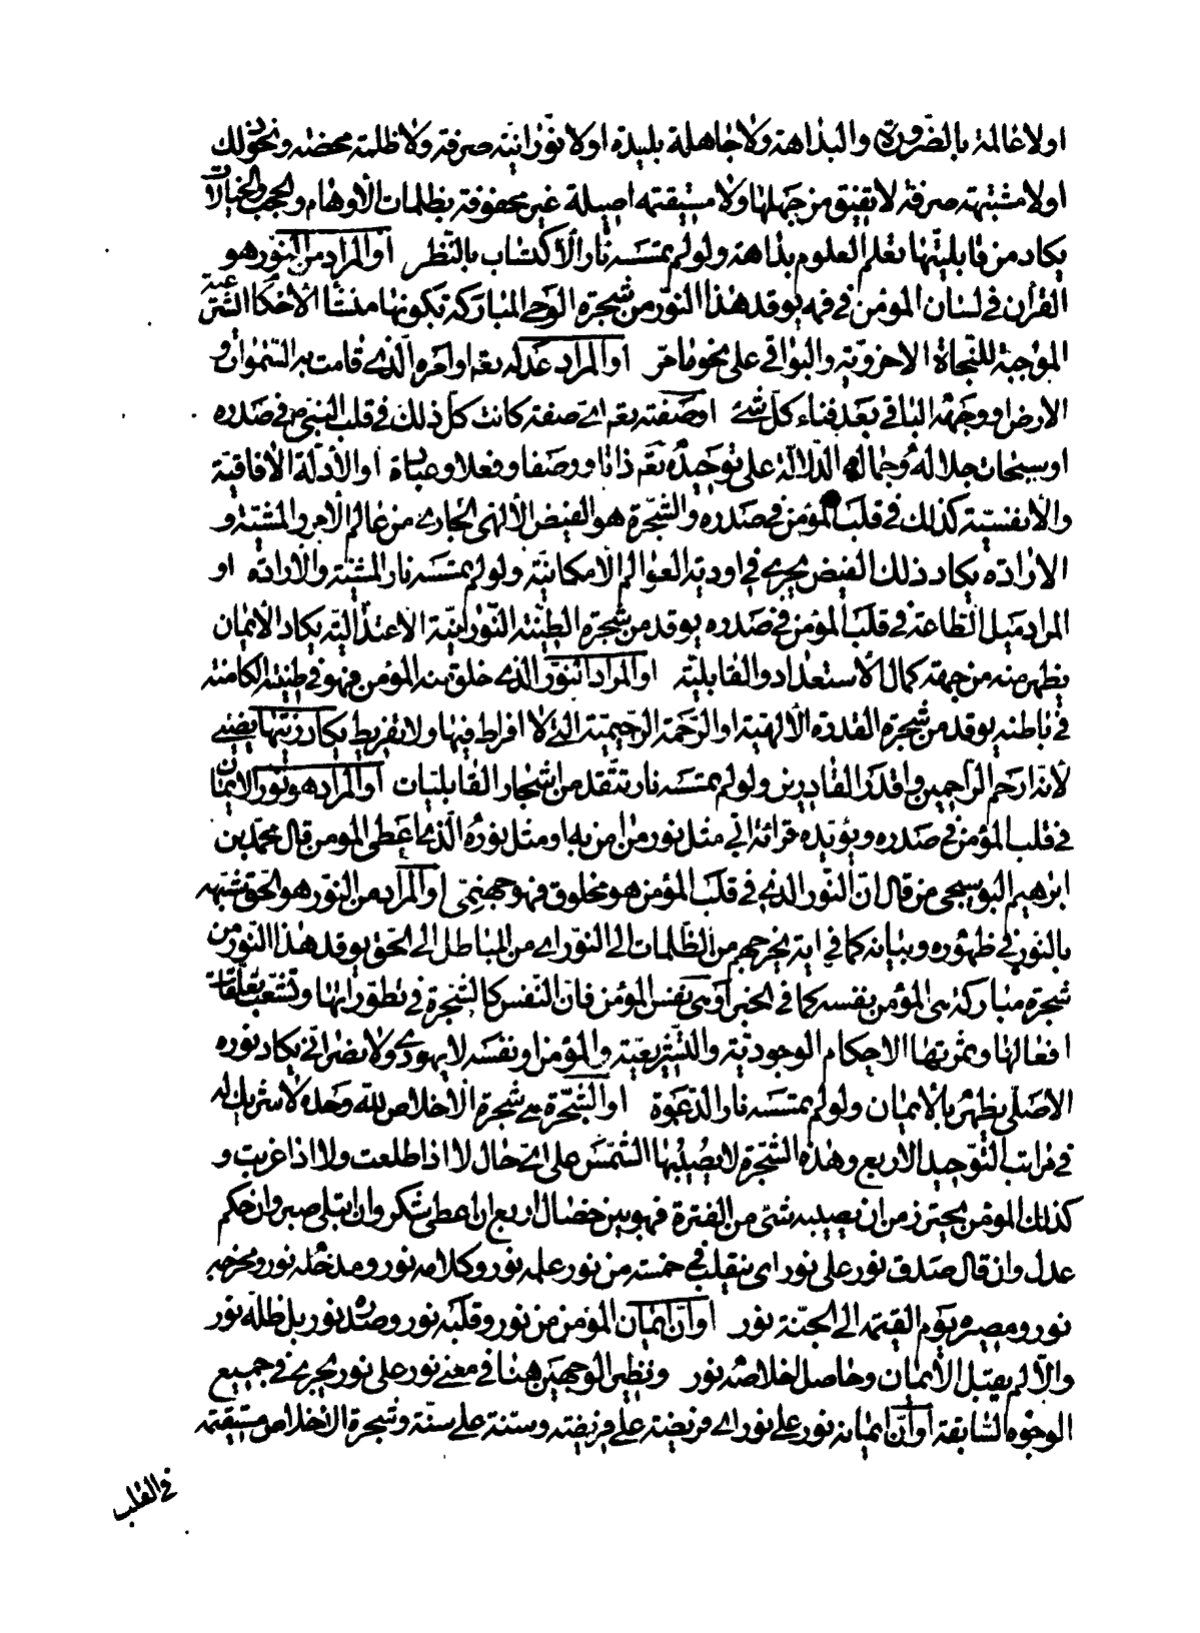 او لا عالمة بالضرورة والبداهة ولا جاهلة بليدة او لا نورانية صرفة ولا ظلمة محضة ونحو ذلك
او لا مشتبهة صرفة لا تفيق من جهلها ولا مستيقنة اصيلة غير محفوفة بظلمات الأوهام والحجب والخيالات
يكاد من قابليتها تعلم العلوم بداهة ولو لم تمسسه نار الأكتساب بالنظر او المراد من النور هو
القران في لسان المؤمن في فمه يوقد هذا النور من شجرة الوحي المباركة تكونها منشأ الأحكام الشرعية
الموجبة للنجاة الاخروية والبواقي على نحو ما مر او المراد عدله تعم او امره الذي قامت به السموات و
الارض او وجهه الباقي بعد فناء كل شئ او صفته تعم اي صفة كانت كل ذلك في قلب النبي ص في صدره
او سبحات جلاله وجماله الدلالة على توحيده تعم ذاتا ووصفا وفعلا وعبادة او الأدلة الأفاقية
والأنفسية كذلك في قلب المؤمن في صدره والشجرة هو الفيض الألهي الجاري من عالم الأمر والمشية و
الارادة يكاد ذلك الفيض يجري في اودية العوالم الامكانية ولو لم تمسسه نار المشية والأرادة او
المراد ميل الطاعة في قلب المؤمن في صدره يوقد من شجرة الطينة النورانية الاعتدالية يكاد الأيمان
يظهر منه من جهة كمال الأستعداد والقابلية او المراد النور الذي خلق منه المؤمن فهو في طينته الكامنة
في باطنه يوقد من شجرة القدرة الألهية او الرحمة الرحيمية التي لا افراط فيها ولا تفريط يكاد زيتها يضيئ
لأنه ارحم الراحمين واقدر القادرين ولو لم تمسسه نار تتقد من اشجار القابليات او المراد هو نور الايمان
في قلب المؤمن في صدره ويؤيده قرائة ابي مثل نور من امن به او مثل نوره الذي اعطى المؤمن قال محمد بن
ابرهيم البوسنجي من قال ان النور الذي في قلب المؤمن هو مخلوق فهو جهنمي او المراد من النور هو الحق شبه
بالنور في ظهوره وبيانه كما في اية يخرجهم من الظلمات الى النور اي من الباطل الى الحق يوقد هذا النور من
شجرة مباركة هي المؤمن بنفسه كما في الخبر او هي نفس المؤمن فان النفس كالشجرة في تطوراتها وتشعب تعلقات
افعالها وثمرتها الاحكام الوجودية والتشريعية والمؤمن او نفسه لا يهودي ولا نصراني يكاد نوره
الاصلي يظهر بالأيمان ولو لم تمسسه نار الدعوة او الشجرة هي شجرة الأخلاص لله وحده لا شريك له
في مراتب التوحيد الاربع وهذه الشجرة لا يصيبها الشمس على اي حال لا اذا طلعت ولا اذا غربت و
كذلك المؤمن يحترز من ان يصيبه شئ من الفترة فهو بين خصال اربع ان اعطى شكر وان ابتلى صبر وان حكم
عدل وان قال صدق نور على نور اي ينقلب في خمسة من نور علمه نور وكلامه نور ومدخله نور ومخرجه
نور ومصيره يوم القيمة الى الجنة نور او ان ايمان المؤمن من نور وقلبه نور وصدره نور بل ظله نور
والا لم يقبل الأيمان وحاصل خلاصه نور ونظير الوجهين هنا في معنى نور على نور يجري في جميع
الوجوه السابقة او ان ايمانه نور على نور اي فريضة على فريضة وسنة على سنة وشجرة الأخلاص مستيقنة
في القلب